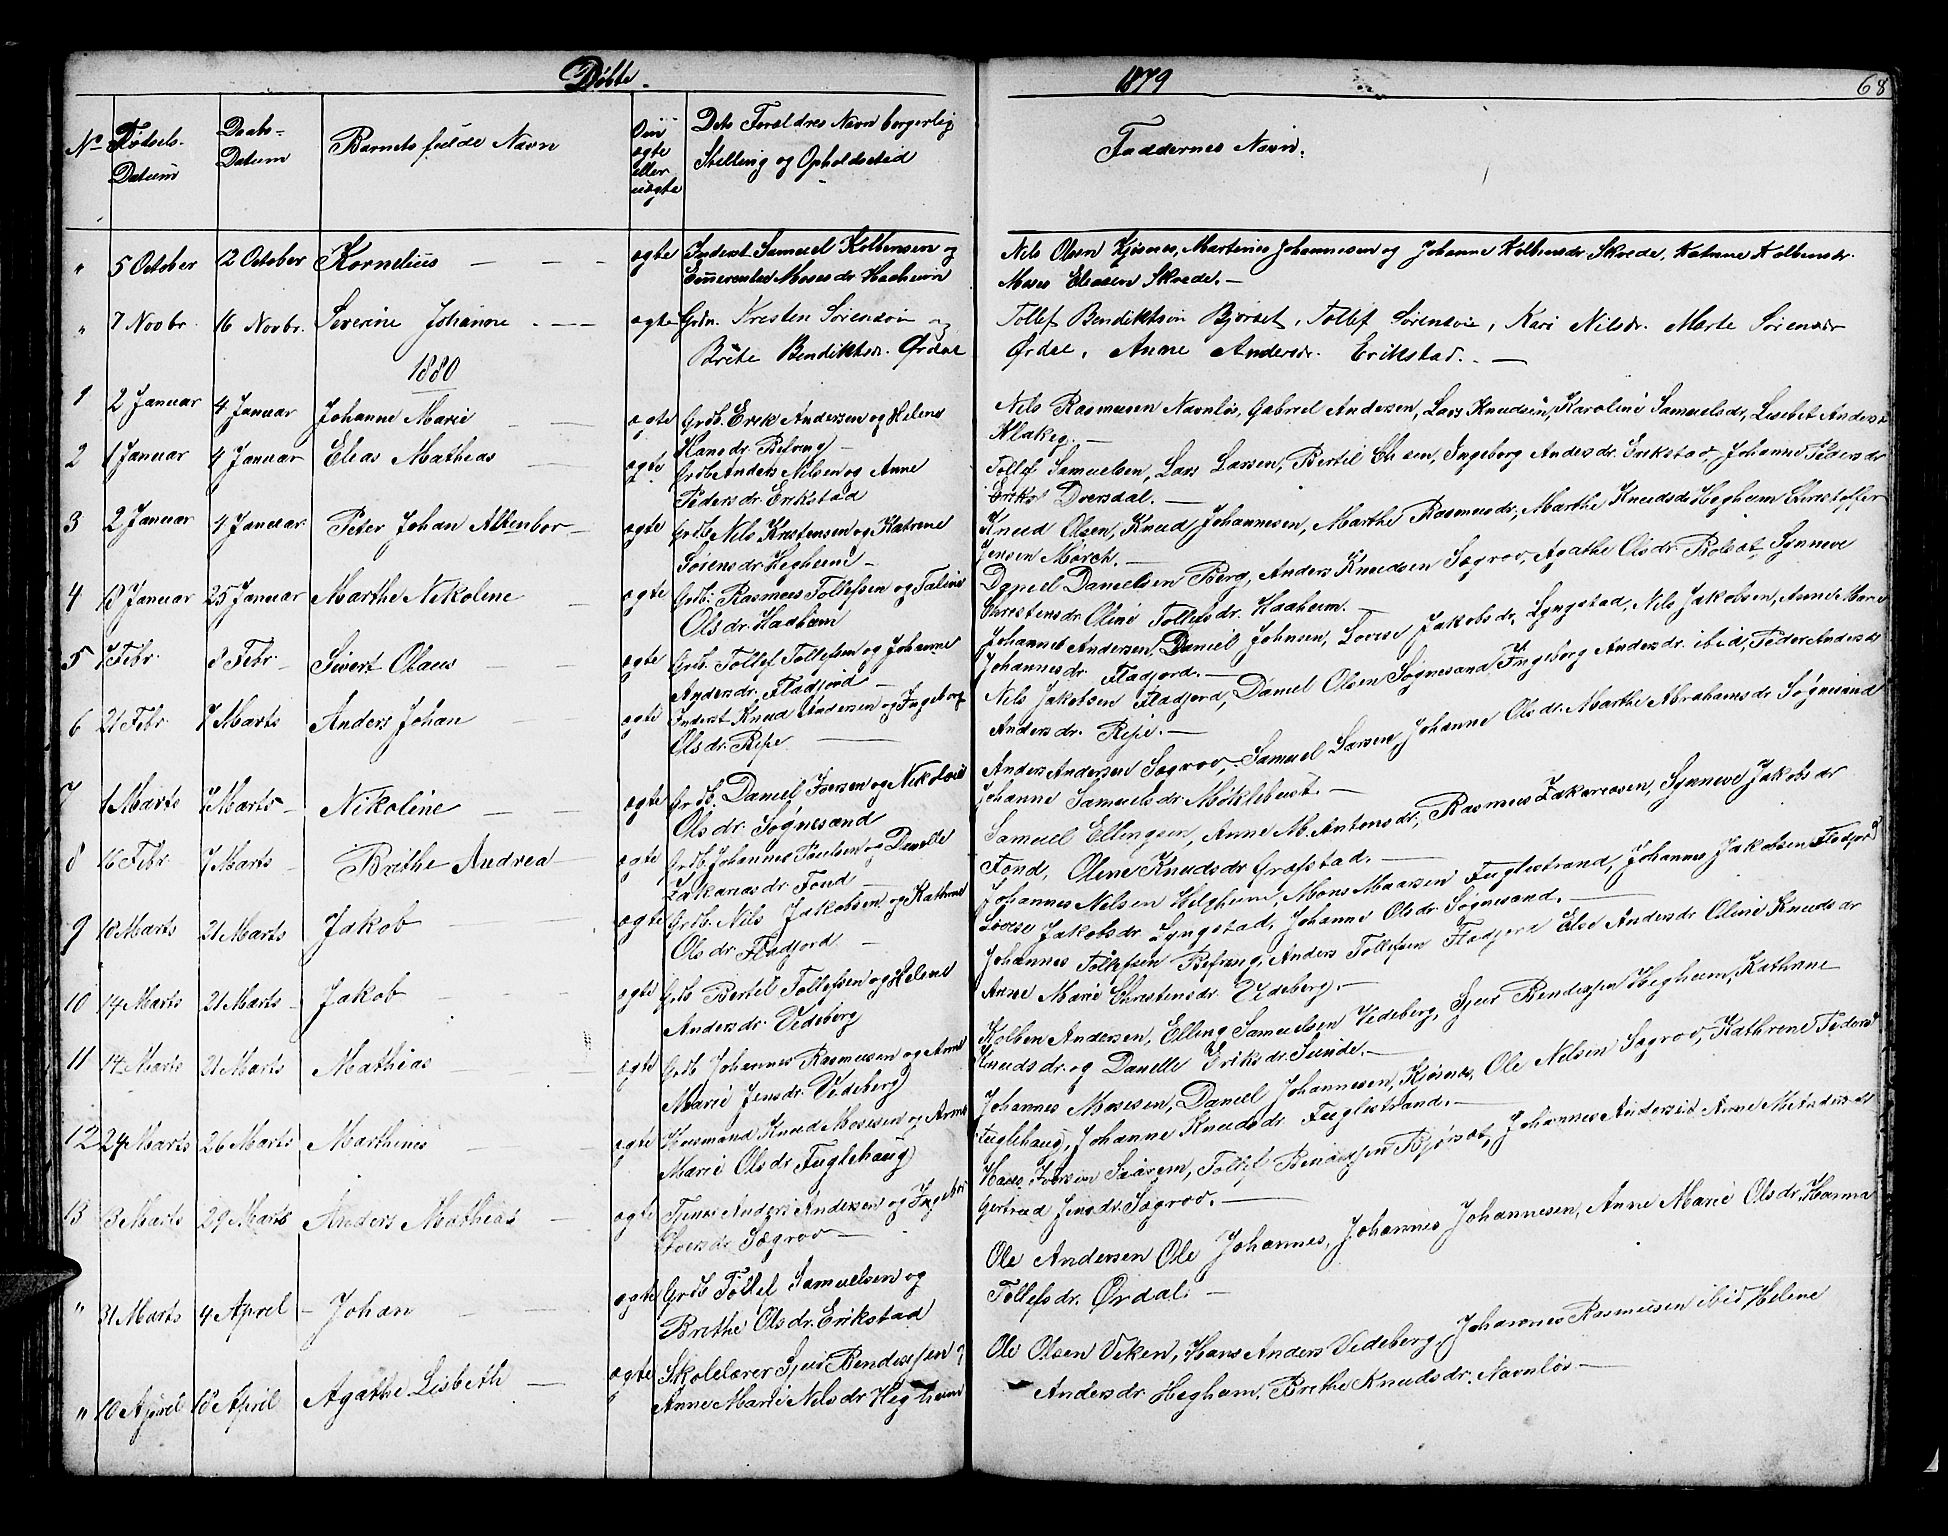 Døbte.
1879
68
No
Fødsels-
Datum
Daabs-
Datum
Barnets fulde Navn
Om
ægte
eller
uægte
Dets Forældres Navn borgerlig
Stilling og Opholdssted
Faddernes Navn.
" 5 October 12 October Kornelius ægte Inderst Samuel Kolbensen og
Mosesdr. Haaheim
Nils Olsen Kjøsnes, Martinus Johannesen og Johanne Kolbensdr Skrede, Katrine Kolbensdr.
Moses Eleasen Skrede.
" 7 Novbr. 16 Novbr. Severine Johanne ægte Grdn. Kristen Sørensøn og
Brite Bendiktsdr. Ørdal
Tollef Bendiktsøn Bjørset, Tollef Sørensøn, Kari Nilsdr. Marte Sørensdr
Ørdal, Anne Andersdr. Erikstad.
1880
1 2 Januar 4 Januar Johanne Marie ægte Grdb. Erik Andersen og Helene
Hansdr. Befring
Nils Rasmusen Navnløs, Gabriel Andersen, Lars Knudsen, Karoline Samuelsdr, Lisbet Andersd
Klakeg.
2 1 Januar 4 Januar Elias Mathias ægte Grdb Anders Nilsen og Anne
Pedersdr. Erikstad
Tollef Samuelsen, Lars Larsen, Bertil Ellensen, Ingeborg Andersdr. Erikstad, Johanne Pedersdr
Dvergsdal.
3 2 Januar 4 Januar Peter Johan Altenbor ægte Grdb Nils Kristensen og Katrine
Sørensdr. Hegheim
Knud Olsen, Knud Johannesen, Marthe Rasmusdr, Marthe Knudsdr Hegheim Christoffer
Jensen Mørch.
4 18 Januar 25 Januar Marthe Nikoline ægte Grdb. Rasmus Tollefsen og Taline
Olsdr. Haaheim
Daniel Danielsen Berg, Anders Knudsen Søgrov, Agathe Olsdr. Synneve
Christensdr. Oline Tollefsdr. Haaheim.
5 1 Febr. 8 Febr. Sivert Olaus ægte Grdb. Tollef Tollefsen og Johanne
Andersdr. Fladjord
Johannes Andersen, Daniel Johnsen, Lovise Jakobsdr, Lyngstad, Nils Jakobsen, Anne Marie
Johannesdr. Fladjord.
6 21 Febr 7 Marts Anders Johan ægte Inderst Knud Andersen og Ingeborg
Olsdr. Ripe
Nils Jakobsen Fladjord, Daniel Olsen Søgnesand, Ingeborg Andersdr. ibid, Peder Andersd
Andersdr. Ripe.
7 1 Marts 7 Marts Nikoline ægte Grdb. Daniel Iversen og Nikoline
Olsdr. Søgnesand
Anders Andersen Søgrov, Samuel Larsen, Johanne Olsdr. Marthe Abrahamsdr. Søgnesand
Johanne Samuelsdr. Møklebust.
8 16 Febr. 7 Marts Brithe Andrea ægte Grdb. Johannes Poulsen og Danelle
Zakariasdr. Fond
Samuel Ellingsen, Anne M. Antonsdr, Rasmus Zakariasen, Synneve Jakobsdr
Fond, Oline Knudsdr Grafstad.
9 18 Marts 21 Marts Jakob ægte Grdb. Nils Jakobsen og Kathrine
Olsdr. Fladjord
Johannes Nilsen Helgheim, Mons Fuglestrand, Johannes Jakobsen Fladjord
Lovise Jakobsdr. Lyngstad, Johanne Olsdr. Søgnesand.
10 14 Marts 21 Marts Jakob ægte Grdb Bertel Tollefsen og Helene
Andersdr. Vedeberg
Johannes Tollefsen Befring, Anders Tollefsen Fladjord Else Andersdr Oline Knudsdr
Anne Marie Christensdr. Vedeberg.
11 14 Marts 21 Marts Mathias ægte Grdb Johannes Rasmusen og Anne
Marie Jensdr. Vedeberg
Kolben Andersen, Elling Samuelsen Vedeberg, Sjur Bendixsen Hegheim, Kathrine
Knudsdr. og Danelle Eriksdr. Sunde.
12 24 Marts 26 Marts Marthinus ægte Husmand Knud Mosesen og Anne
Marie Olsdr. Fuglehaug
Johannes Mosesen, Daniel Johannesen, Kjøsnes, Ole Nilsen Søgrov, Kathrine Pedersd
Fuglehaug, Johanne Knudsdr Fuglestrand.
13 3 Marts 29 Marts Anders Mathias ægte Tjener Anders Andersen og Ingeborg
Iversdr. Søgrov
Hans Iversen Saarem, Tollef Bendixsen Bjørset, Johannes Andersen Anne M. Andersdr
Gertrud Jensdr. Søgrov.
" 31 Marts 4 April Johan ægte Grdb Tollef Samuelsen og
Brithe Olsdr. Erikstad
Ole Andersen Ole Johannes, Johannes Johannesen, Anne Marie Olsdr. Hanna
Tollefsdr. Ørdal.
" 10 April 18 April Agathe Lisbeth ægte Skolelærer Sjur Bendixsen og
Anne Marie Nilsdr. Hegheim
Ole Olsen Viken, Hans Anders Vedeberg, Johannes Rasmusen ibid Helene
Andersdr. Hegheim, Brithe Knudsdr. Navnløs